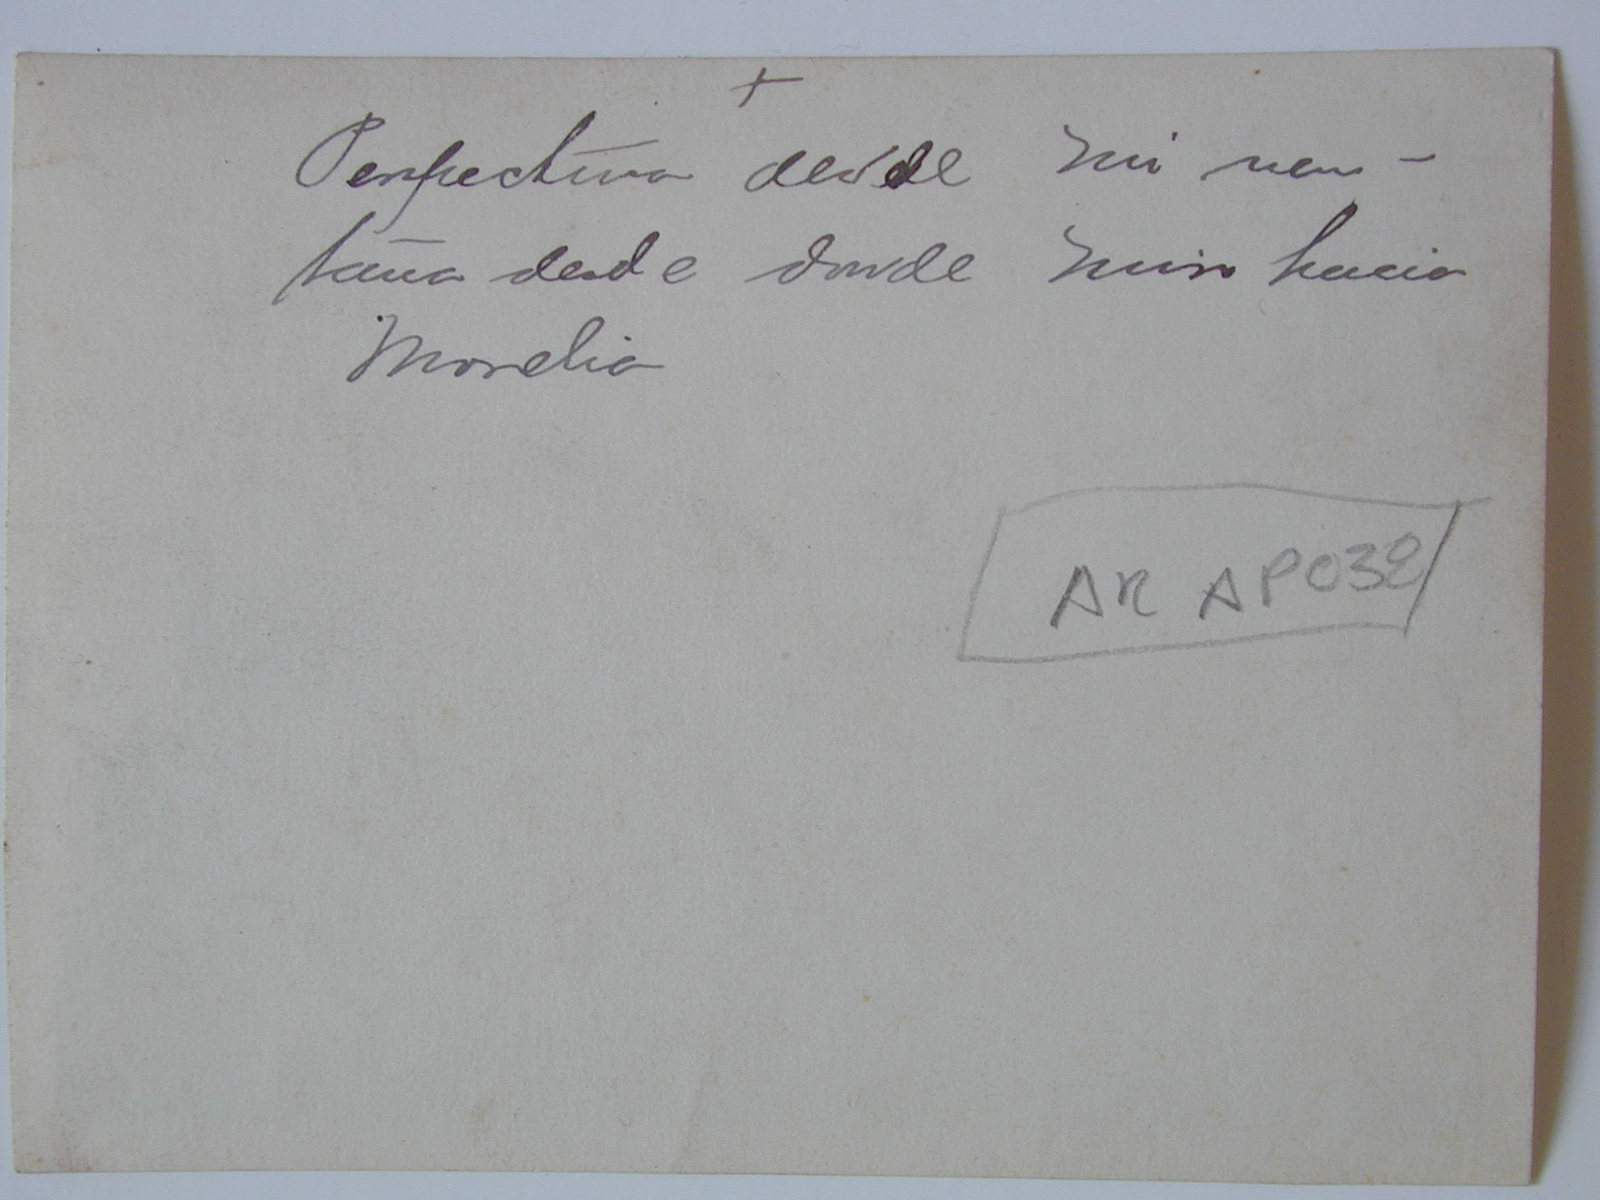 +
Perspectiva desde mi ven-
tana desde donde miro hacia
Morelia
AR AP032